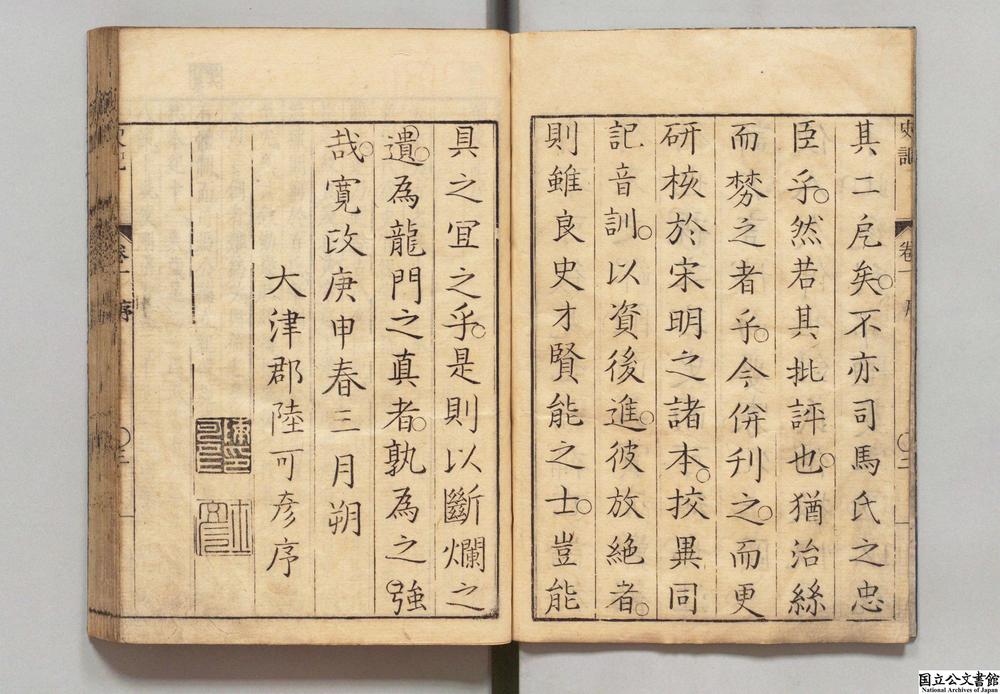 史記 卷一 序 〇二
其二戹矣。不亦司馬氏之忠
臣乎。然若其批評也。猶治絲
而棼之者乎。今併刋之。而更
研核於宋明之諸本。挍異同
記音訓。以資後進。彼放絶者。
則雖良史才賢能之士。豈能
具之宜之乎。是則以斷爛之
遺。為龍門之真者。孰為之強
哉。寛政庚申春三月朔
大津郡陸可彦序
史記 卷一 序 〇三
国立公文書館
National Archives of Japan